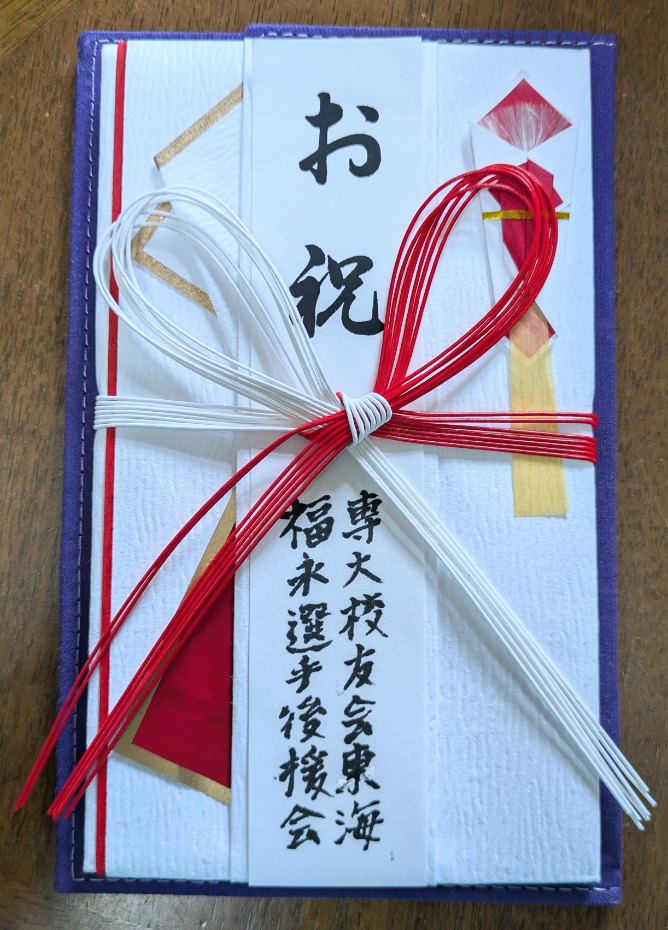 お祝
専大校友会東海
福永選手後援会